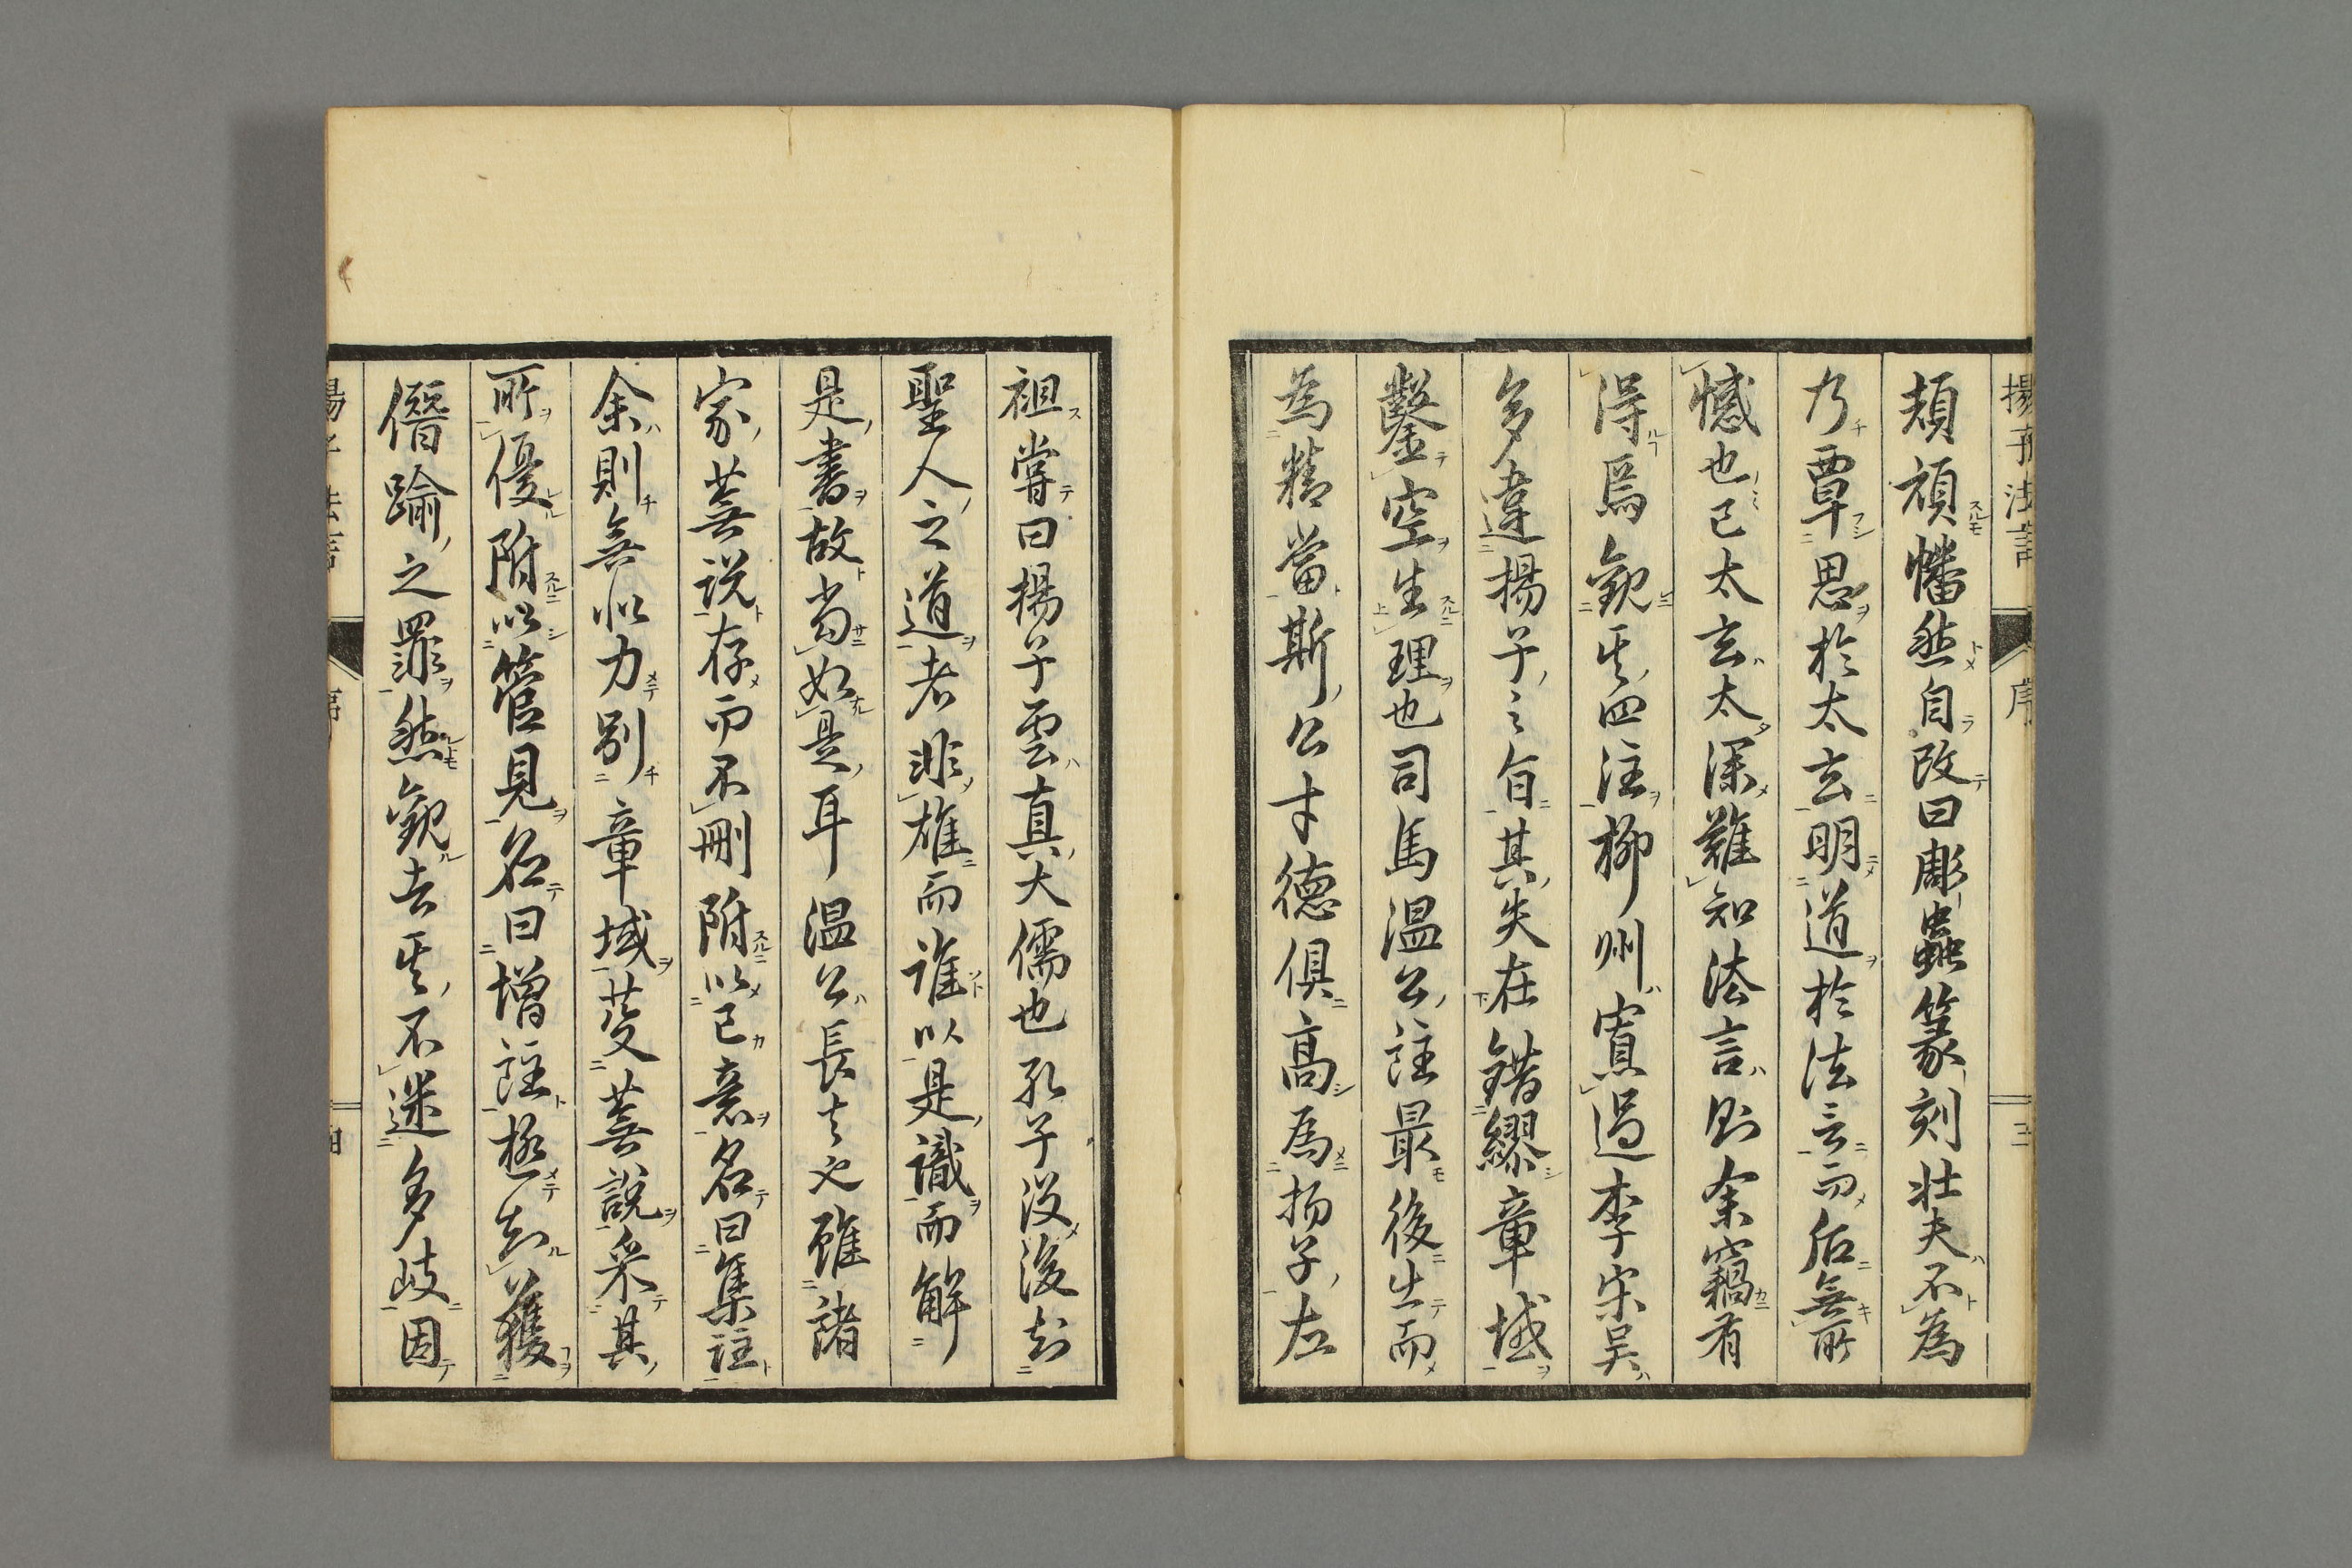 頡頏幡然自改曰彫蟲篆刻壮夫不為
乃覃思於太玄明道於法言而后無所
憾也已太玄太深難知法言則余竊有
得焉観其四注柳州寡過李宋呉
多違揚子之旨其失在錯繆章域
鑿空生理也司馬温公註最後出而
為精當斯公才德俱高為揚子左
祖嘗曰揚子雲真大儒也孔子没後知
聖人之道者非雄而誰以是識而解
是書故当如是耳温公長者也雖諸
家蕪説存而不刪附以己意名曰集註
余則無似力別章域芟蕪説采其
所優附以管見名曰増註極知獲
僭踰之罪然観者其不迷多岐因
揚子法言
序
三